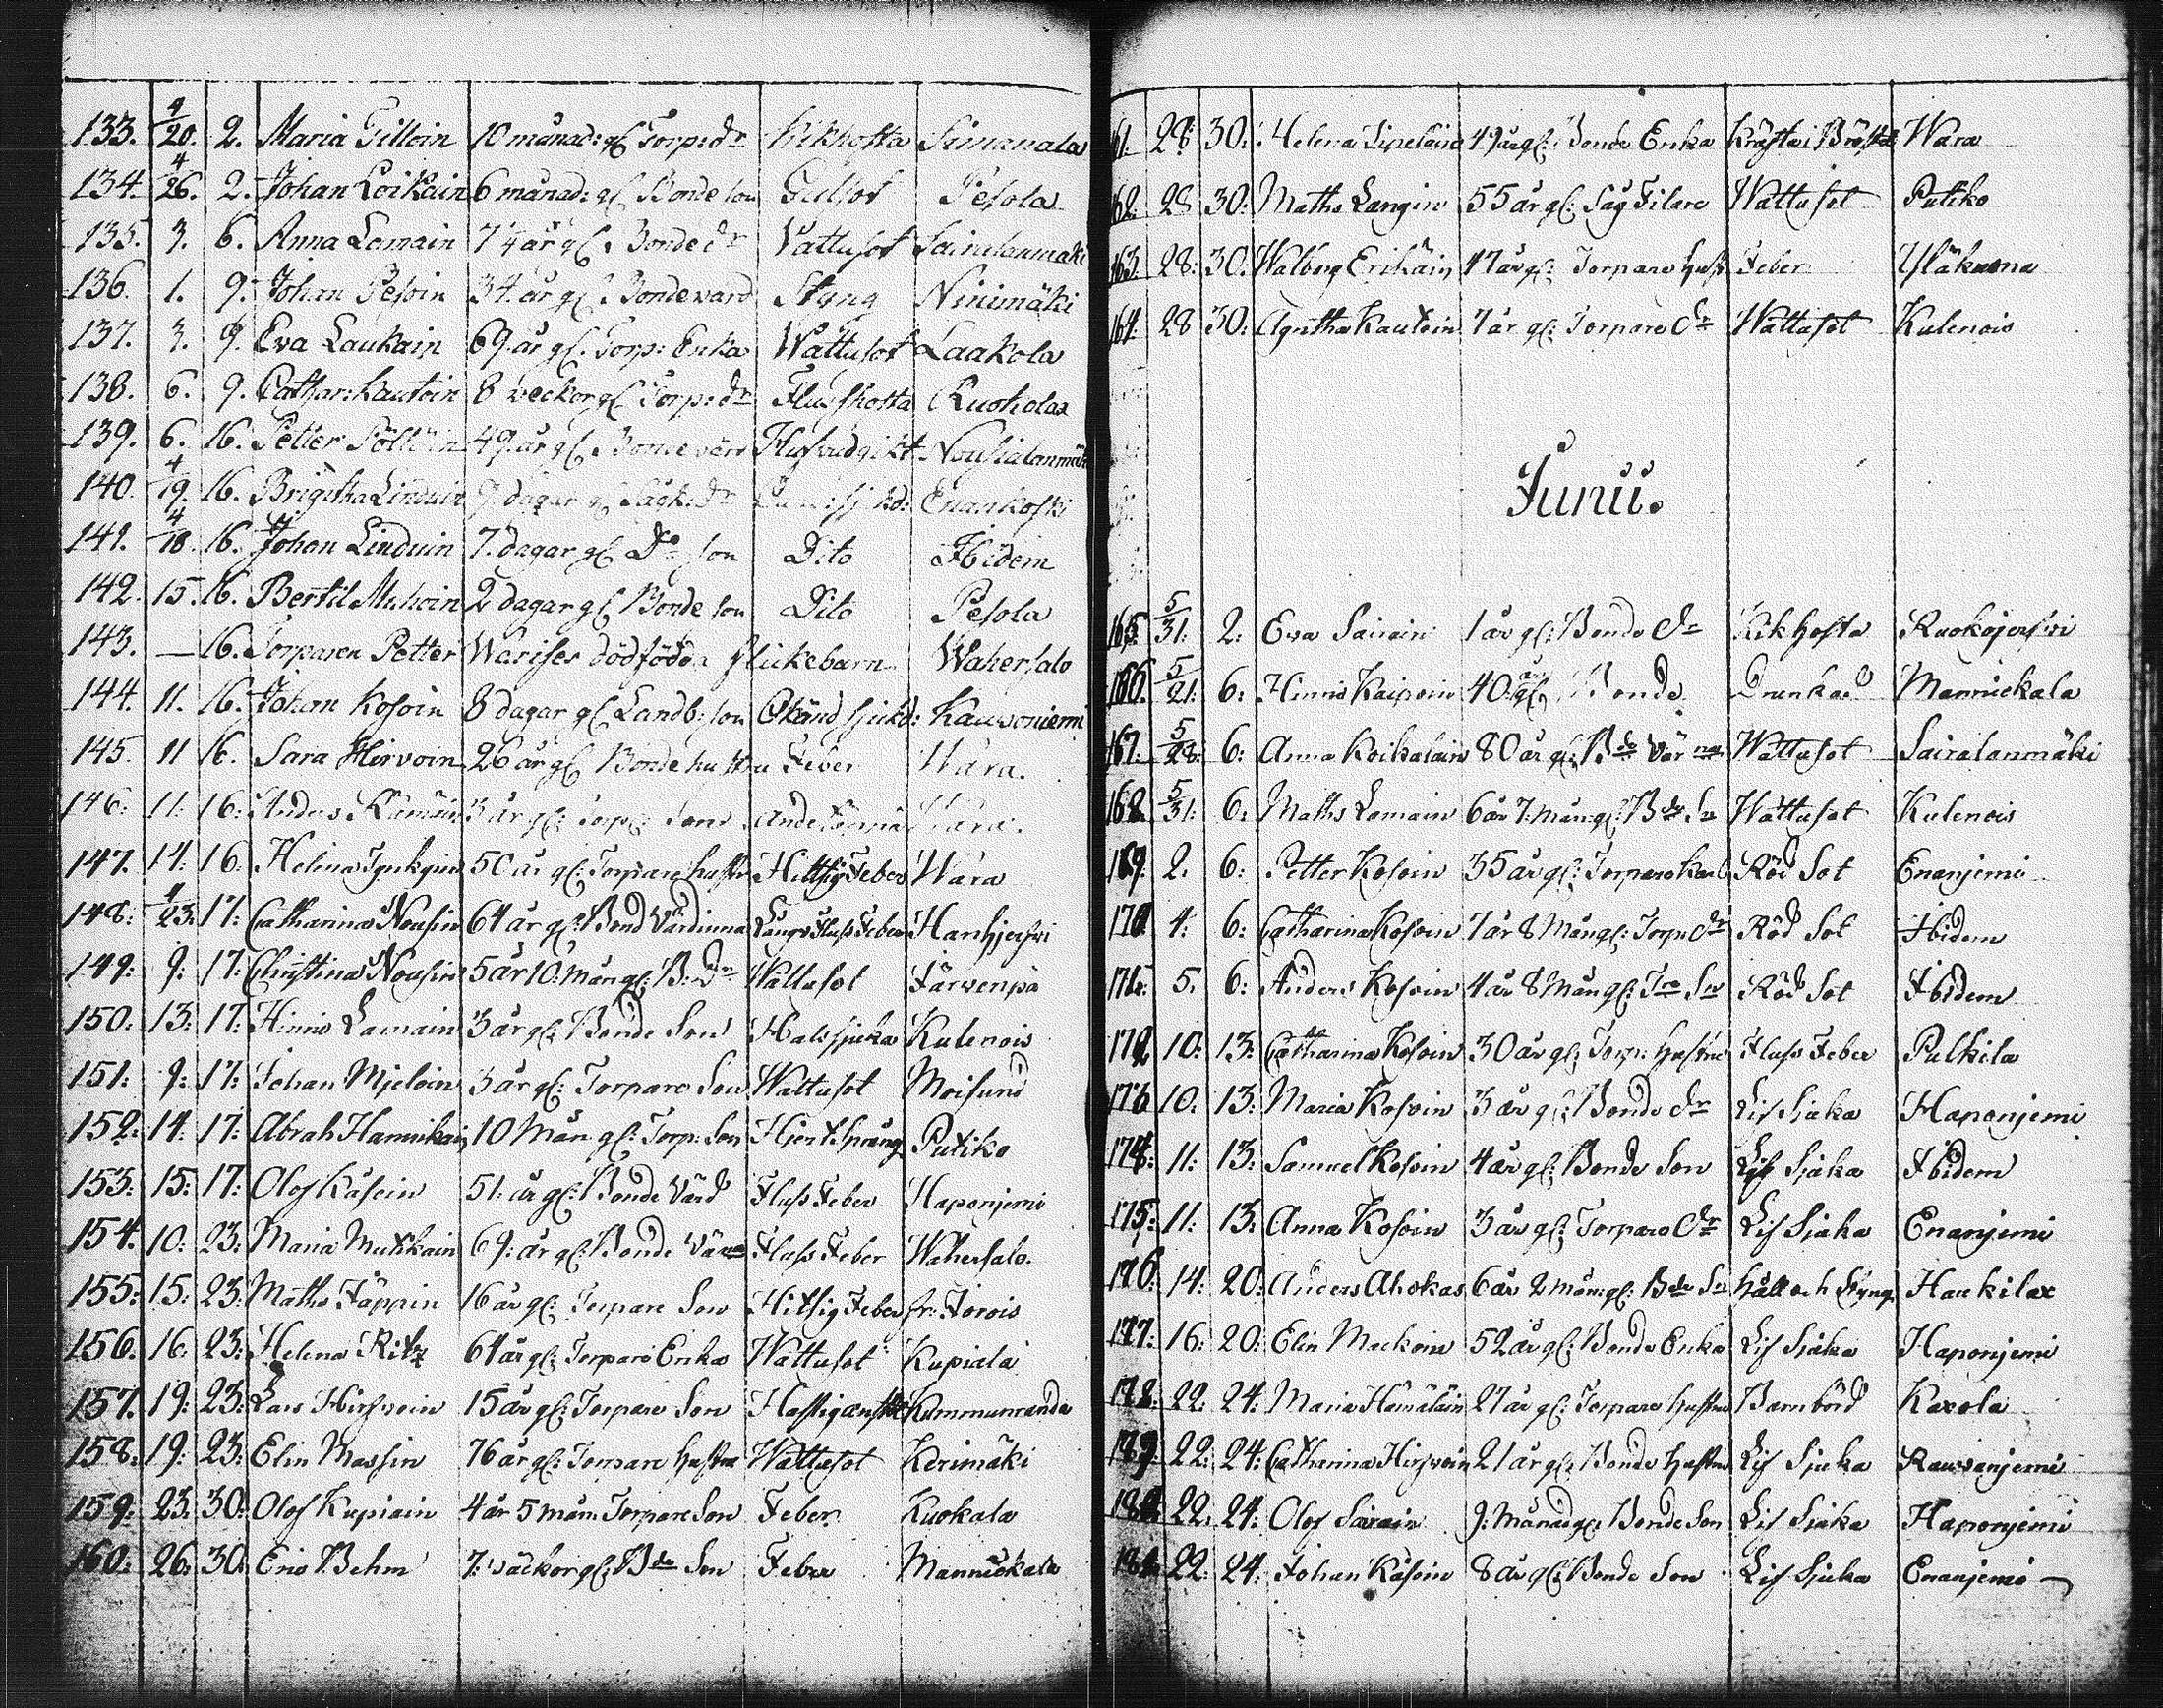 133. 4/20. 2. Maria Tilloin 10 månad: gl Torp: dr Kikhosta Simanala
134. 4/26. 2. Johan Loikain 6 månad: gl Bonde son Gulsot Pesola
135. 3. 6. Anna Lomain 7 1/4 år gl Bonde dr Vattusot Sairalanmäki
136. 1. 9. Johan Pesoin 34 år gl Bondevärd Styng Ninimäki
137. 3. 9. Eva Laukain 69 år gl. Torp: Enka Wattusot Laakola
138. 6. 9. Cathar: Kautoin 8 veckor gl Torp: dr Flusshosta Ruokolax
139. 6. 16. Petter Pöllöin 49 år gl Bonde värd Hufvudgikt Nousialanmäki
140. 4/19. 16. Brigitha Linduin 9 dagar gl dr Enankoski
141. 4/18. 16. Johan Linduin 7. dagar gl Do son Dito Ibidem
142. 15. 16. Bertil Muhoin 2 dagar gl Bonde son Dito Pesola
143. — 16. Torparen Petter Warises dödfödda flickebarn Wahersalo
144. 11. 16. Johan Kosoin 8 dagar gl Landb: son Okänd sjukd: Kauvoniemi
145. 11 16. Sara Hirvoin 26 år gl Bonde hustru Feber Wara.
146: 11: 16: Anders 3 år gl: Torp: Son Andtäppa Wara.
147. 14: 16 Helena Tynkyin 50 år gl: Torpare hustru Hittsig Feber Wara
148: 4/23: 17: Catharina Nousin 64 år gl: Bond Värdinna Lungs Fluss Feber Hanhjerfvi
149: 9: 17: Christina Nousin 5 år 10 mån gl: B: Dr Wattusot Järvenpä
150: 13: 17: Hinric Lamain 3 år gl: Bonde Son Halssjuka Kulenois
151: 9: 17: Johan Mjeloin 3 år gl: Torpare Son Wattusot Moisund
152: 14: 17: Abrah Hannikain 10 Mån gl: Torp: Son Hjertsprång Putiko
153: 15: 17: Olof Käsoin 51: år gl: Bonde Värd Fluss Feber Haponjemi
154. 10: 23: Maria Mutkkain 69: år gl: Bonde Värna Fluss Feber Wahersalo.
155: 15: 23: Maths Jäppin 16 år gl: Torpare Son Hitsig Feber fr: Jorois
156. 16. 23: Helena Ritz 64 år gl: Torpare Enka Wattusot Kupiala
157. 19: 23: Lars Hirfvoin 15 år gl: Torpare Son Kummunranda
158: 19: 23: Elin Massin 76 år gl: Torpare hustru Wattusot Kerimäki
159: 23: 30: Olof Kupiain 4 år 5 mån: Torpare Son Feber Kuokala
160: 26: 30: Eric Behm 7: väckor gl: Bde Son Feber Mannickala
61. 28: 30: Helena Sipeläin 49 år gl: Bonde Enka Kräfta i Bröstet Wara
62. 28 30: Maths Langin 55 år gl: Såg Filare Wattusot Putiko
163. 28: 30: Walborg Erikäin 47 år gl: Torpare hust Feber Yläkuona
164. 28 30: Agnetha Kautoin 7 år gl: Torpare dr Wattusot Kulenois
Junii.
165. 5/31: 2: Eva Sairain 1 år gl: Bonde dr Kikhosta Ruokojerfvi
166. 5/21: 6: Hinric Kaipoin 40 år gl: Bonde Drunknad Mannickala
167. 5/28: 6: Anna Koikalain 80 år gl: Bde Värna Wattusot Sairalanmäki
168. 5/31: 6: Maths Lomain 6 år 7: mån gl: Bde Sn Wattusot Kulenois
169. 2. 6: Petter Kosoin 35 år gl: Torpare Karl Röd Sot Enanjemi
170 4: 6: Catharina Kosoin 7 år 8 Mån gl: Torp: dr Röd Sot Ibidem
171: 5. 6: Anders Kosoin 4 år 8 Mån gl: Tre Sn Röd Sot Ibidem
172 10: 13: Catharina Kosoin 30 år gl: Torp: hustru Fluss Feber Pulkila
173 10: 13: Maria Kosoin 3 år gl: Bonde dr Lif Sjuka Haponjemi
174: 11: 13: Samuel Kosoin 4 år gl: Bonde Son Lif Sjuka Ibidem
175: 11: 13. Anna Kosoin 3 år gl: Torpare dr Lif Sjuka Enanjemi
176: 14: 20: Anders Ahokas 6 år 2 mån gl: Bde Sn Håll och Styng Haukilax
177: 16: 20: Elin Mackoin 52 år gl: Bonde Enka Lif Sjuka Haponjemi
178: 22: 24: Maria Hämäläin 27 år gl: Torpare hustru Barnbörd Kaxola
179: 22: 24: Catharina Hirfvoin 21 år gl: Bonde hustru Lif Sjuka Rauvanjemi
180: 22: 24: Olof Sairain 9: Månad gl: Bonde Son Lif Sjuka Haponjemi
181: 22: 24: Johan Käsoin 8 år gl: Bonde Son Lif Sjuka Enanjemi